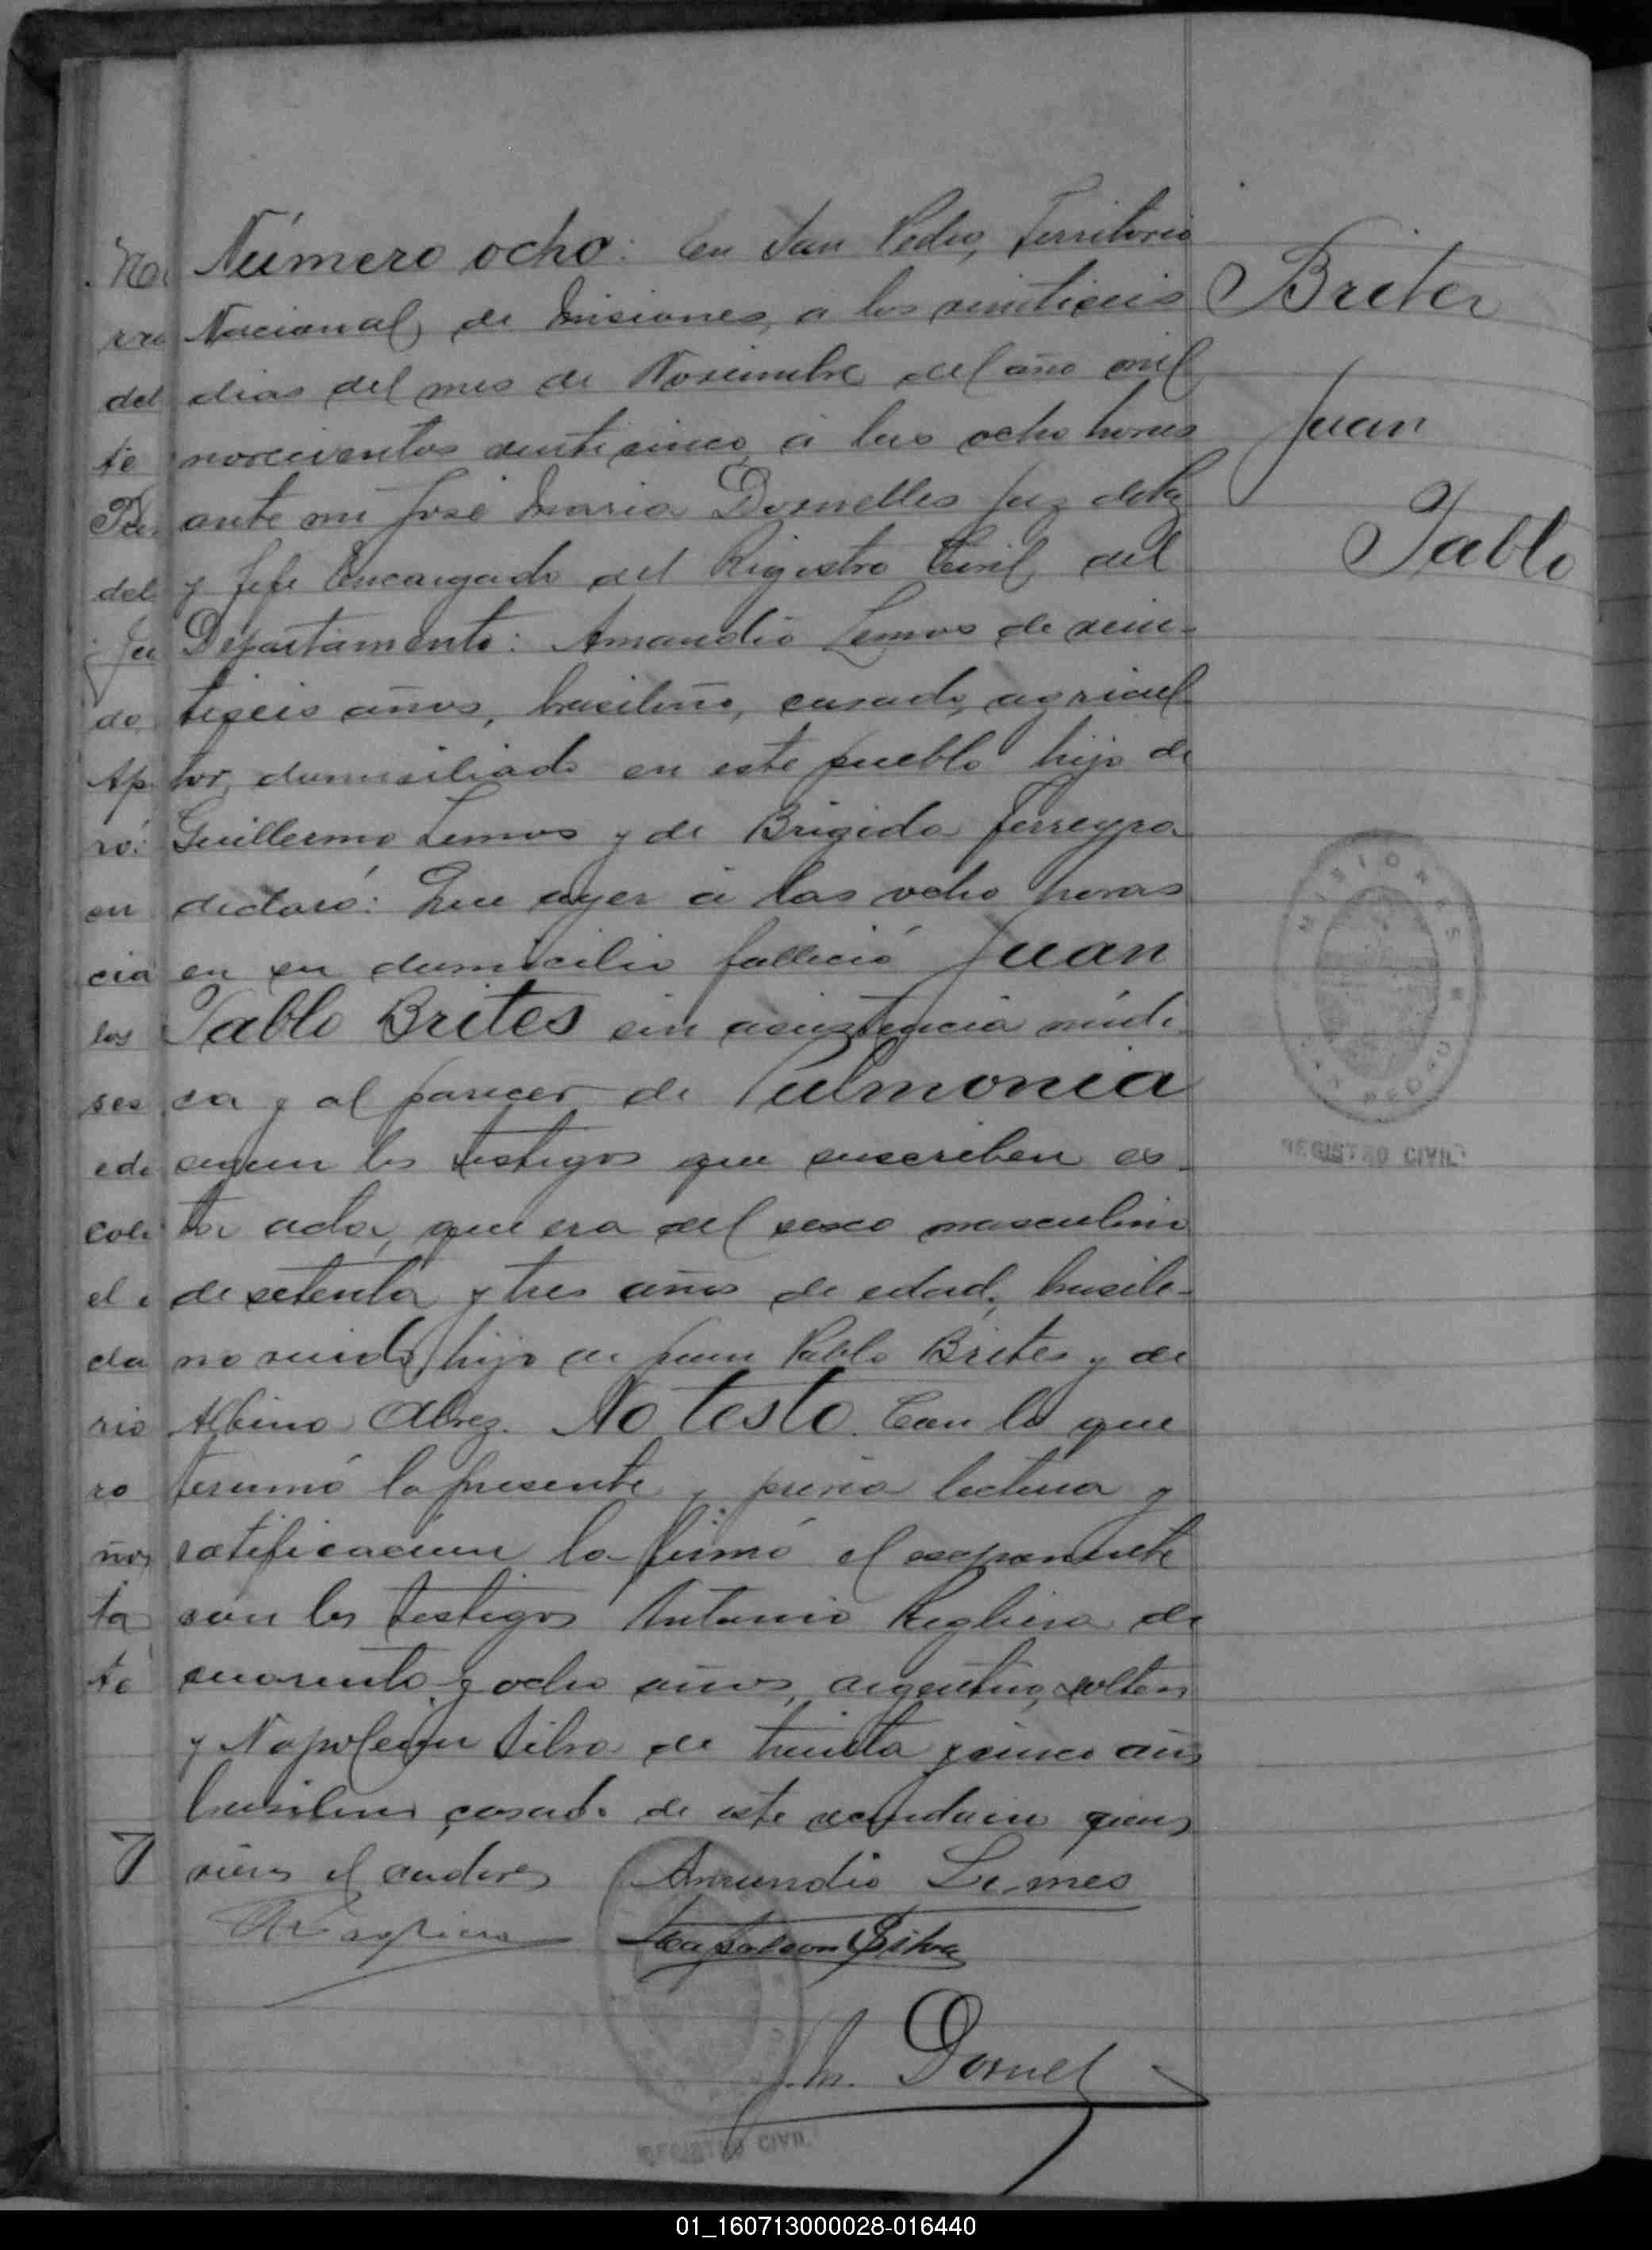 Número ocho: En San Pedro, Territorio
Nacional de Misiones, a los veintiseis
dias del mes de Noviembre del año mil
novecientos veinticinco, á las ocho horas
ante mi José Maria Dornelles Juez de Paz
y Jefe Encargado del Registro Civil del
Departamento: Amandio Lemos de vein-
tiseis años, brasilero, casado, agricul-
tor, domiciliado en este pueblo hijo de
Guillermo Lemos y de Brigida Ferreyra
declaró: Que ayer á las ocho horas
en su domicilio falleció Juan
Pablo Brites sin asistencia médi-
ca y al parecer de Pulmonia
segun los testigos que suscriben es-
ta acta, que era del sexo masculino
de setenta y tres años de edad, brasile-
no viudo, hijo de Juan Pablo Brites y de
Albina Alvez. No testó. Con lo que
terminó la presente y previa lectura y
ratificacion la firmó el exponente
con los testigos Antonio
cuarenta y ocho años, argentino, soltero
y Napoleon Silva de treinta y cinco años
brasilero casado de este vecindario quienes
vieron el cadaver
Amandio Lemes
Napoleon Silva
J. M. Dornel
Brites
Juan
Pablo
MISIONES
SAN PEDRO
REGISTRO CIVIL
REGISTRO CIVIL
01_160713000028-016440